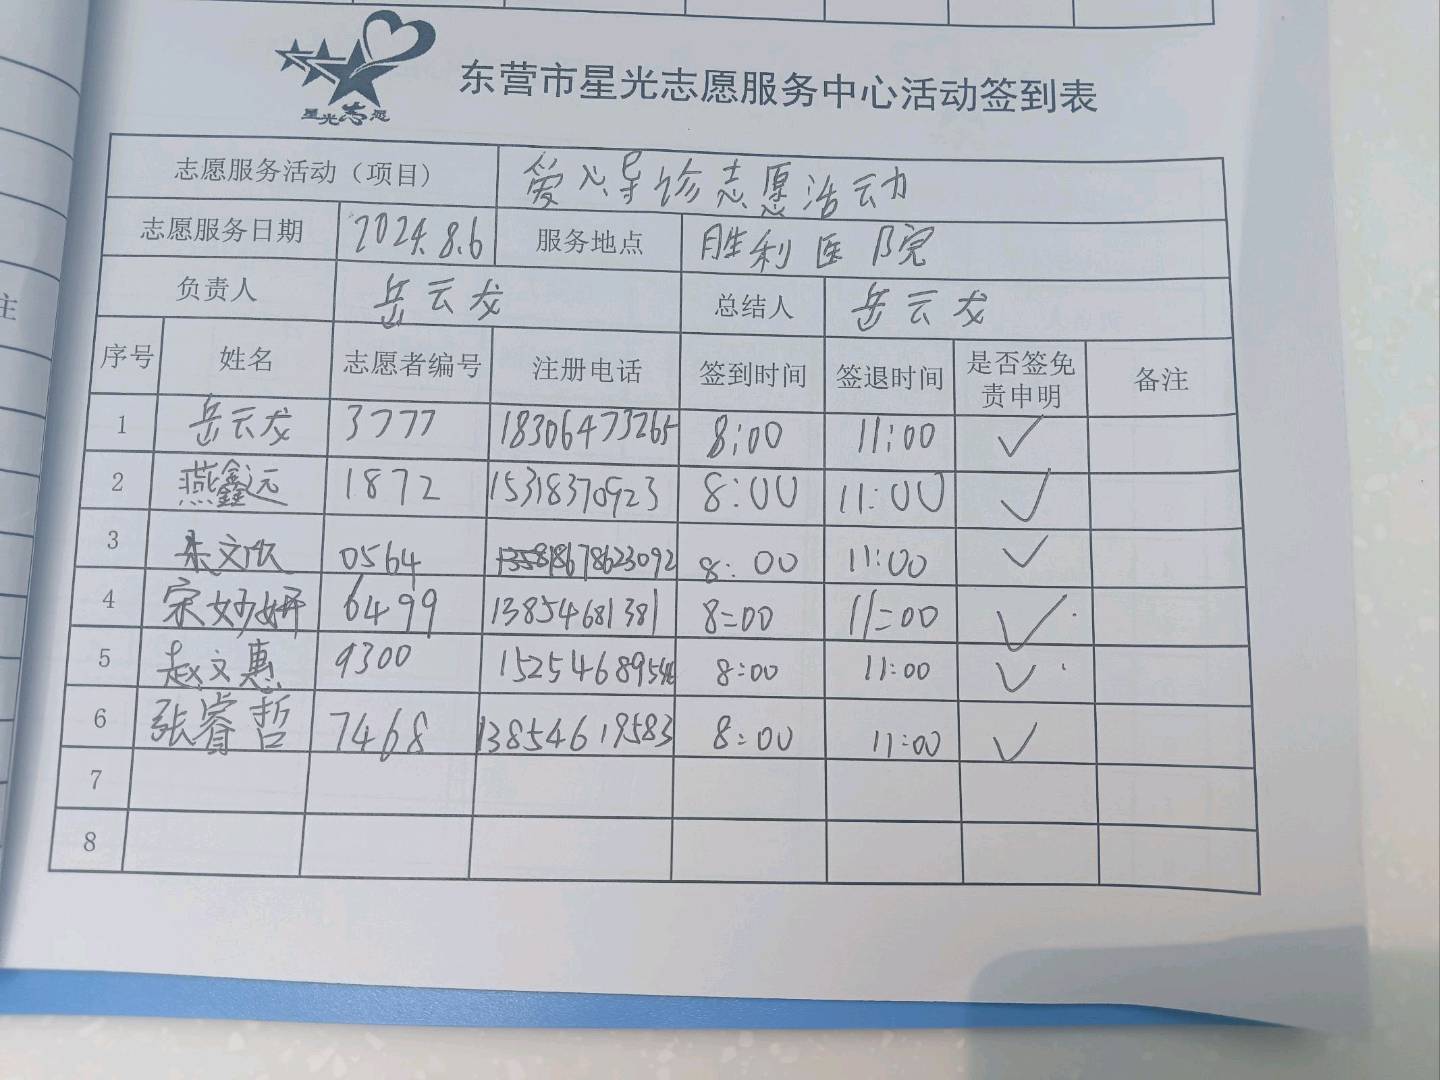 星光志愿
东营市星光志愿服务中心活动签到表
志愿服务活动（项目） 爱心导诊志愿活动
志愿服务日期 2024.8.6 服务地点 胜利医院
负责人 岳云龙 总结人 岳云龙
主
序号 姓名 志愿者编号 注册电话 签到时间 签退时间 是否签免责申明 备注
1 岳云龙 3777 18306473265 8:00 11:00 ✓
2 燕鑫远 1872 15318370923 8:00 11:00 ✓
3 朱文欣 0564 18678623092 8:00 11:00 ✓
4 宋妙妍 6499 13854681381 8:00 11:00 ✓
5 赵文惠 9300 15254689546 8:00 11:00 ✓
6 张睿哲 7468 13854619583 8:00 11:00 ✓
7
8